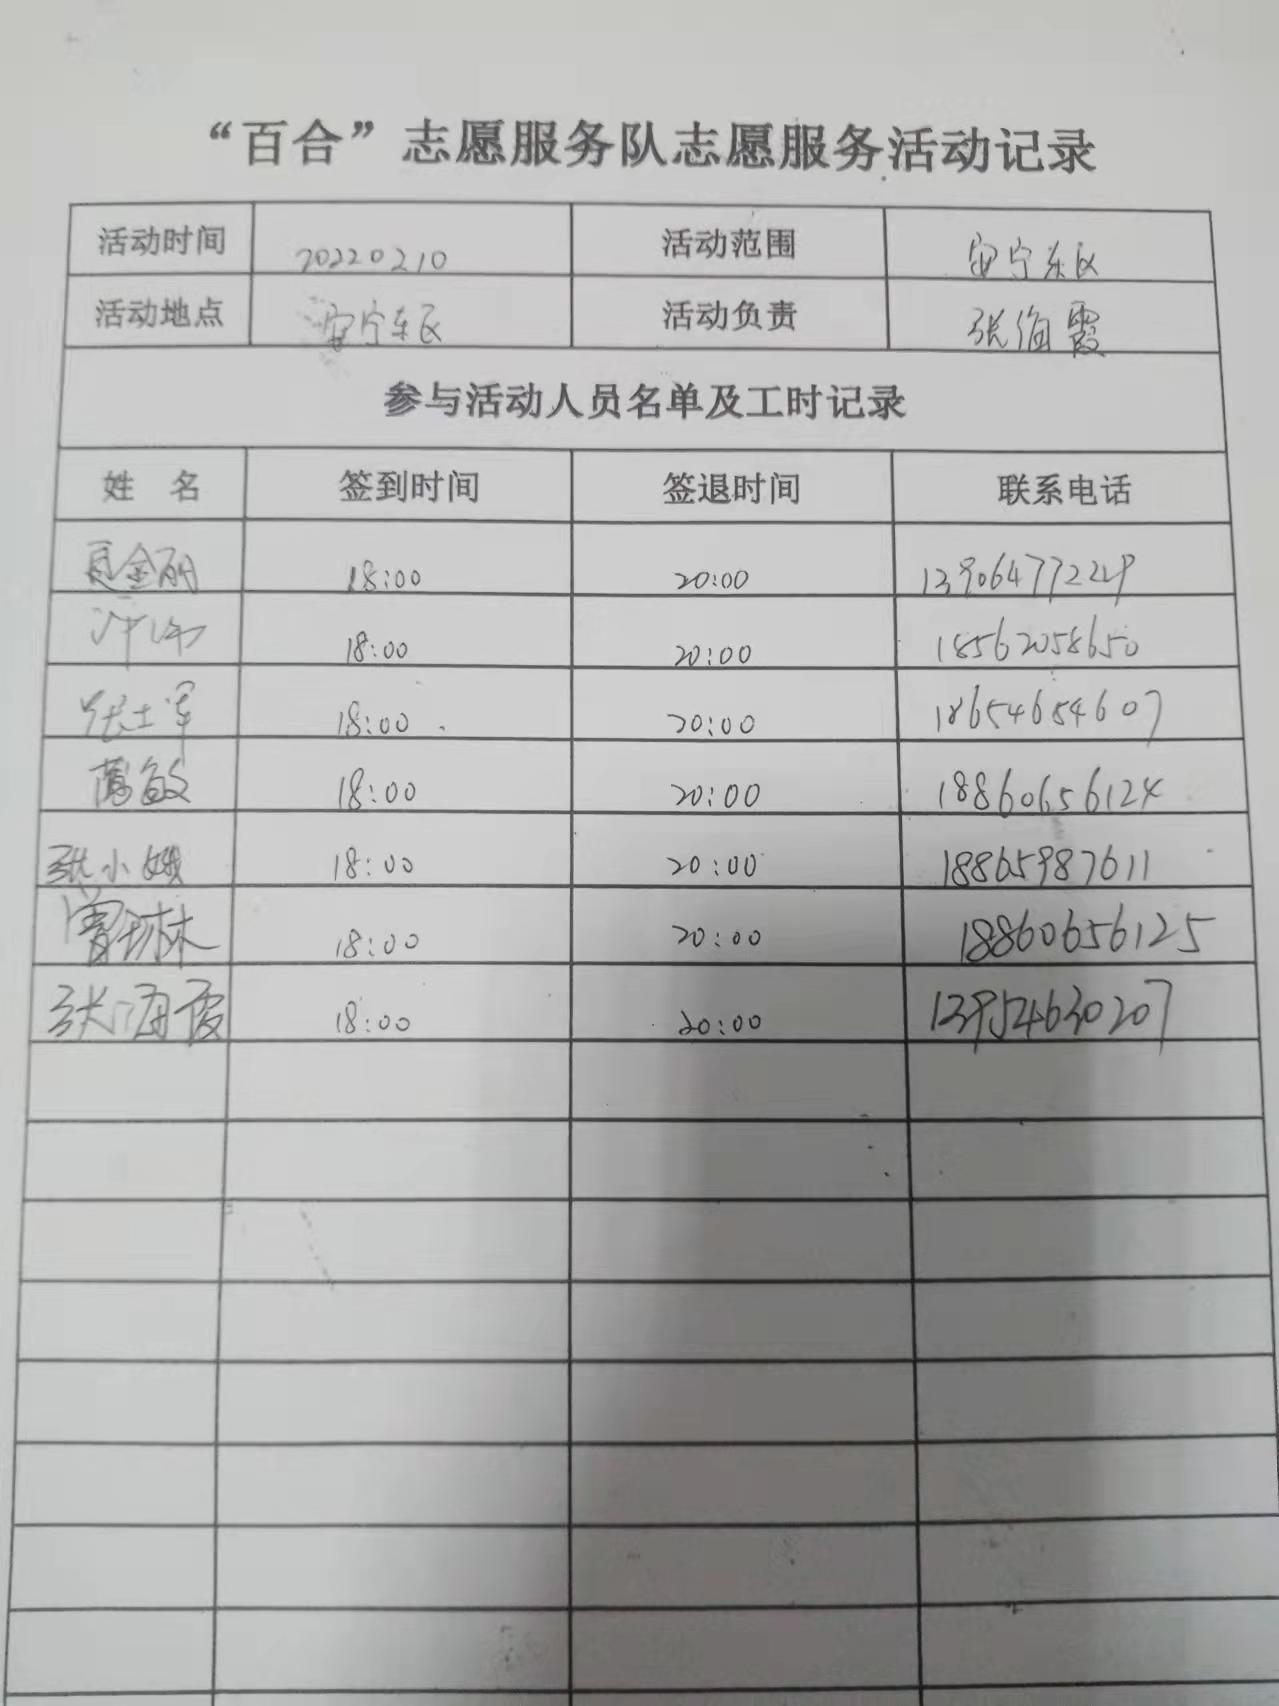 “百合”志愿服务队志愿服务活动记录
活动时间 20220210 活动范围 安宁东区
活动地点 安宁东区 活动负责 张海霞
参与活动人员名单及工时记录
姓 名 签到时间 签退时间 联系电话
18:00 20:00 13906477229
18:00 20:00 18562058650
18:00 20:00 18654654607
敏 18:00 20:00 18860656124
张小娥 18:00 20:00 18865987611
曹琳 18:00 20:00 18860656125
张海霞 18:00 20:00 13954630207